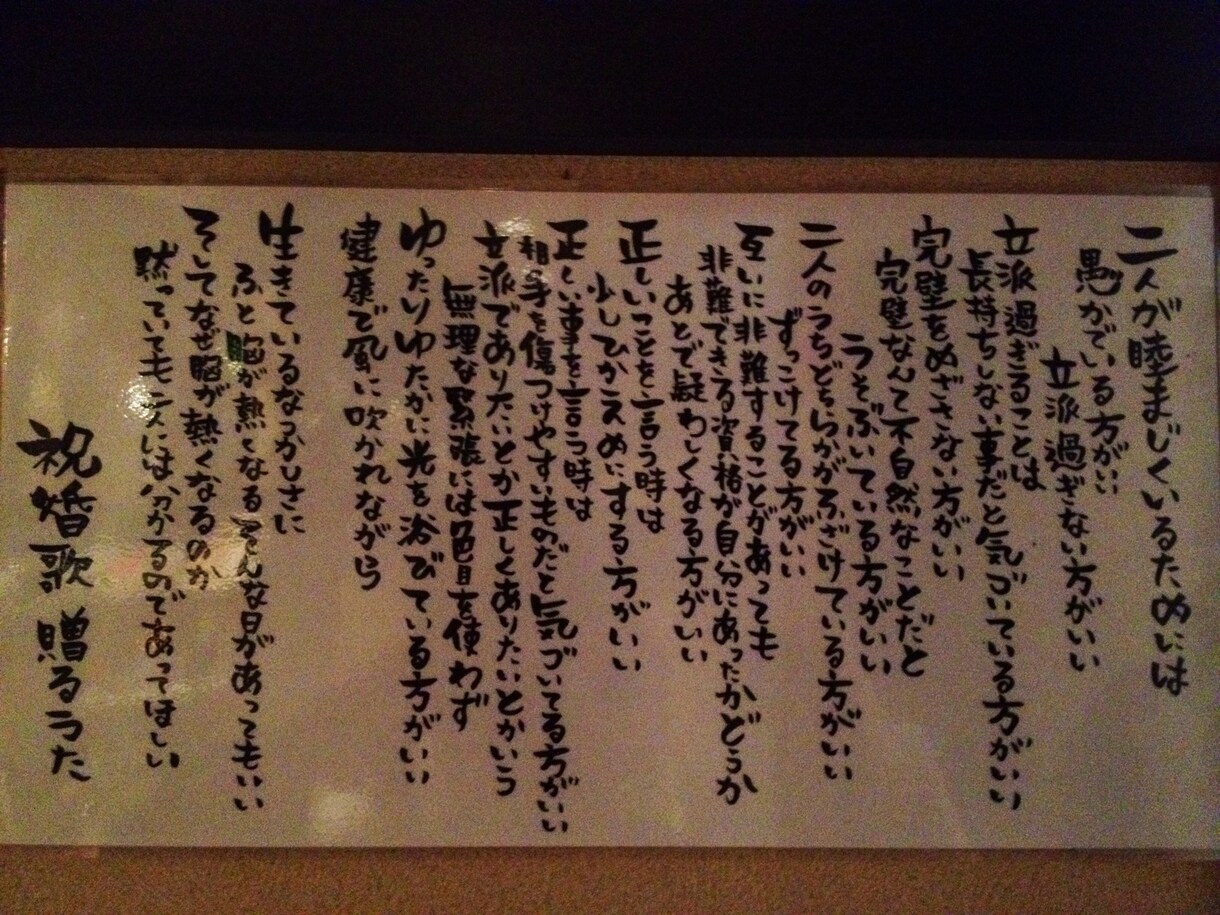 二人が睦まじくいるためには
愚かでいる方がいい
立派過ぎない方がいい
立派過ぎることは
長持ちしない事だと気づいている方がいい
完璧をめざさない方がいい
完璧なんて不自然なことだと
うそぶいている方がいい
二人のうちどちらかがふざけている方がいい
ずっこけてる方がいい
互いに非難することがあっても
非難できる資格が自分にあったかどうか
あとで疑わしくなる方がいい
正しいことを言う時は
少しひかえめにする方がいい
正しい事を言う時は
相手を傷つけやすいものだと気づいてる方がいい
立派でありたいとか正しくありたいとかいう
無理な緊張には色目を使わず
ゆったりゆたかに光を浴びている方がいい
健康で風に吹かれながら
生きているなつかしさに
ふと胸が熱くなるそんな日があってもいい
そしてなぜ胸が熱くなるのか
黙っていても二人には分かるのであってほしい
祝婚歌 贈るうた